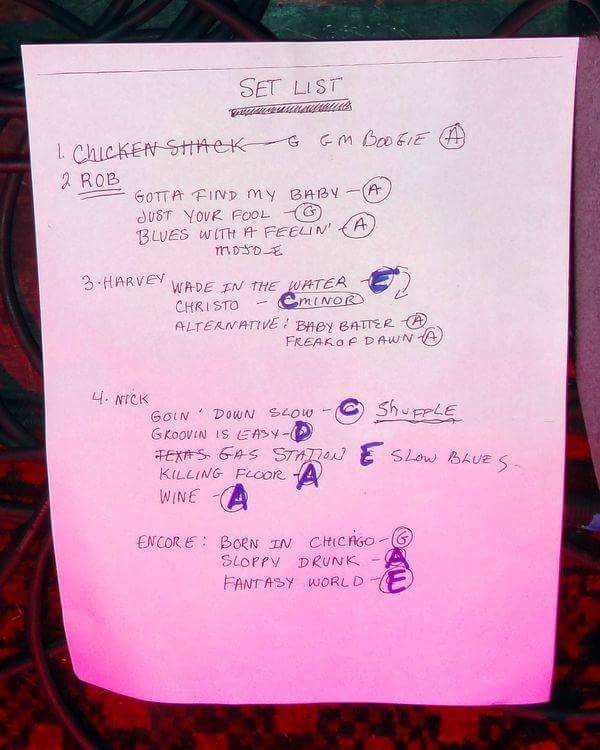 SET LIST
1. CHICKEN SHACK - G GM BOOGIE A
2 ROB
GOTTA FIND MY BABY - A
JUST YOUR FOOL - G
BLUES WITH A FEELIN' - A
MOJO - E
3. HARVEY WADE IN THE WATER - E
CHRISTO - C MINOR
ALTERNATIVE: BABY BATTER - A
FREAK OF DAWN - A
4. NICK
GOIN' DOWN SLOW - C SHUFFLE
GROOVIN IS EASY - D
TEXAS GAS STATION E SLOW BLUES.
KILLING FLOOR - A
WINE - A
ENCORE: BORN IN CHICAGO - G
SLOPPY DRUNK - A
FANTASY WORLD - E